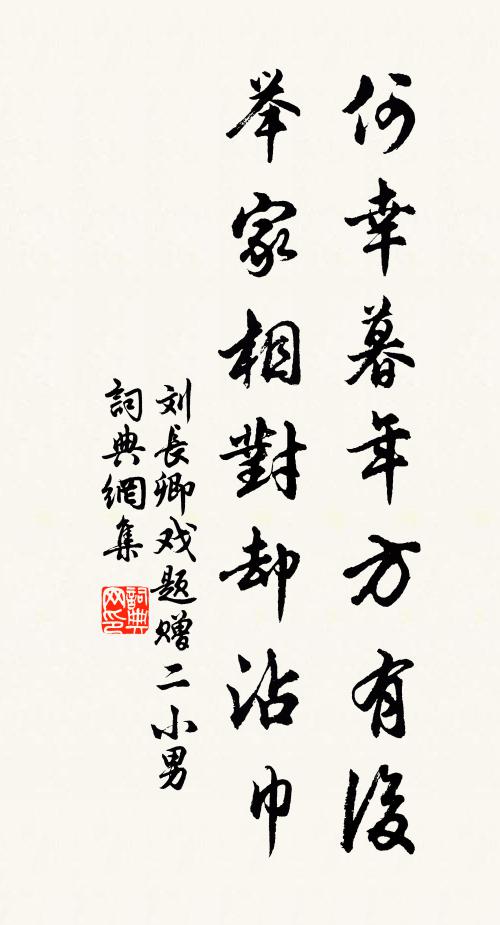 何幸暮年方有後
举家相對却沾巾
刘長卿戏题赠二小男
詞典網集
詞典网印